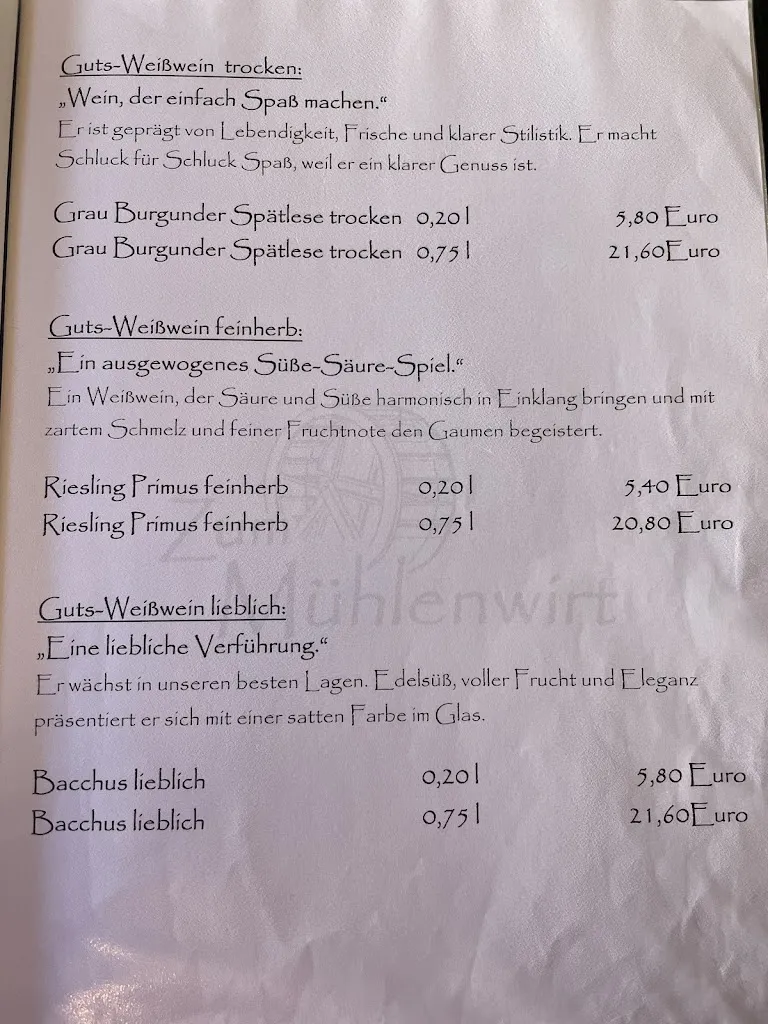 Guts-Weißwein trocken:
„Wein, der einfach Spaß machen.“
Er ist geprägt von Lebendigkeit, Frische und klarer Stilistik. Er macht
Schluck für Schluck Spaß, weil er ein klarer Genuss ist.
Grau Burgunder Spätlese trocken 0,20 l 5,80 Euro
Grau Burgunder Spätlese trocken 0,75 l 21,60Euro
Guts-Weißwein feinherb:
„Ein ausgewogenes Süße-Säure-Spiel.“
Ein Weißwein, der Säure und Süße harmonisch in Einklang bringen und mit
zartem Schmelz und feiner Fruchtnote den Gaumen begeistert.
Riesling Primus feinherb 0,20 l 5,40 Euro
Riesling Primus feinherb 0,75 l 20,80 Euro
Zum
Mühlenwirt
Guts-Weißwein lieblich:
„Eine liebliche Verführung.“
Er wächst in unseren besten Lagen. Edelsüß, voller Frucht und Eleganz
präsentiert er sich mit einer satten Farbe im Glas.
Bacchus lieblich 0,20 l 5,80 Euro
Bacchus lieblich 0,75 l 21,60Euro